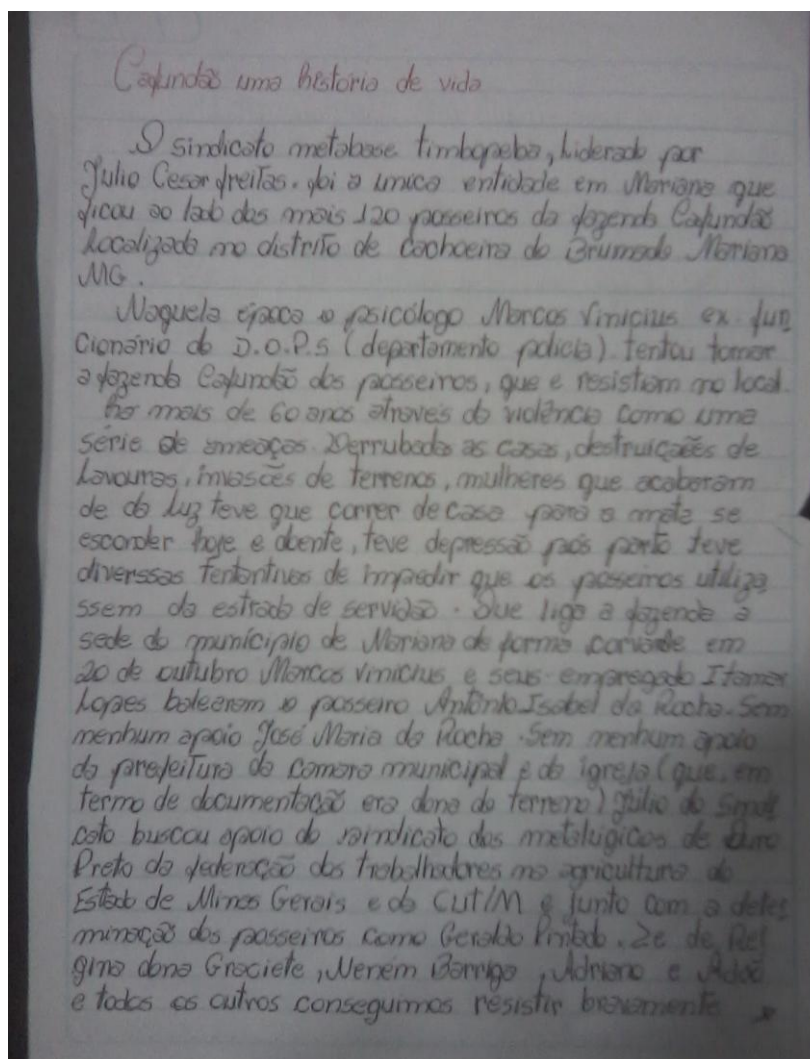 Cafundão uma história de vida
O sindicato metabase timbopeba, Liderado por
Julio Cesar freitas. foi a unica entidade em Mariana que
ficou ao lado dos mais 120 posseiros da fazenda Cafundão
Localizada no distrito de cachoeira do Brumado Mariana
MG.
Naquela época o psicólogo Marcos Vinicius ex-fun
cionário do D.O.P.S (departamento policia). tentou tomar
a fazenda Cafundão dos posseiros, que e resistiam no local
ha mais de 60 anos através da violência como uma
série de ameaças. Derrubada as casas, destruiçaões de
Lavouras, invasões de terrenos, mulheres que acabaram
de da luz teve que correr de casa para a mata se
esconder hoje e doente, teve depressão pós parto teve
diverssas tentantivas de impedir que os posseiros utiliza
ssem da estrada de servidão. Que liga a fazenda a
sede do município de Mariana de forma corvade em
20 de outubro Marcos Vinicius e seus empregado Itamar
Lopes balearam o posseiro Antônio Isabel da Rocha. Sem
menhum apoio José Maria da Rocha. Sem menhum apoio
da prefeitura da camara municipal e da igreja (que, em
termo de documentação era dona do terreno) Júlio do Sindi
cato buscou apoio do saindicato dos metalúgicos de Ouro
Preto da federação dos trabalhadores na agricultura do
Estado de Minas Gerais e da CUT/M e junto com a deter
minação dos posseiros como Geraldo Pintado. Ze de
gina dona Graciete, Neném Barriga, Adriano e Adão
e todos os outros conseguimos resistir bravamente